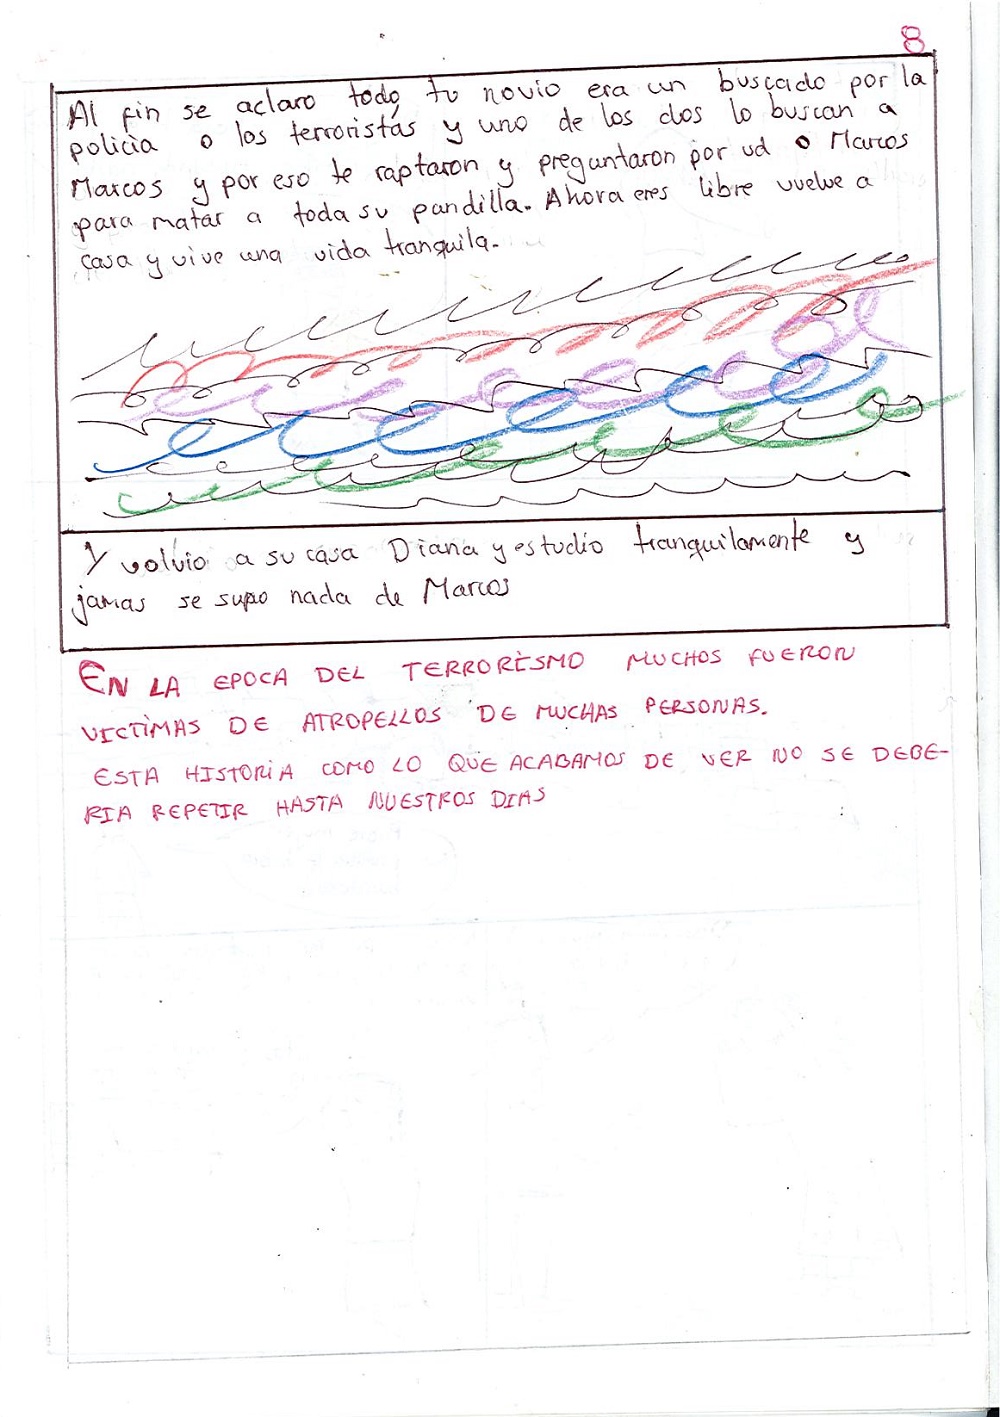 8
Al fin se aclaro todo, tu novio era un buscado por la
policia o los terroristas y uno de los dos lo buscan a
Marcos y por eso te raptaron y preguntaron por ud o Marcos
para matar a toda su pandilla. Ahora eres libre vuelve a
casa y vive una vida tranquila.
Y volvio a su casa Diana y estudio tranquilamente y
jamas se supo nada de Marcos
EN LA EPOCA DEL TERRORISMO MUCHOS FUERON
VICTIMAS DE ATROPELLOS DE MUCHAS PERSONAS.
ESTA HISTORIA COMO LO QUE ACABAMOS DE VER NO SE DEBE-
RIA REPETIR HASTA NUESTROS DIAS